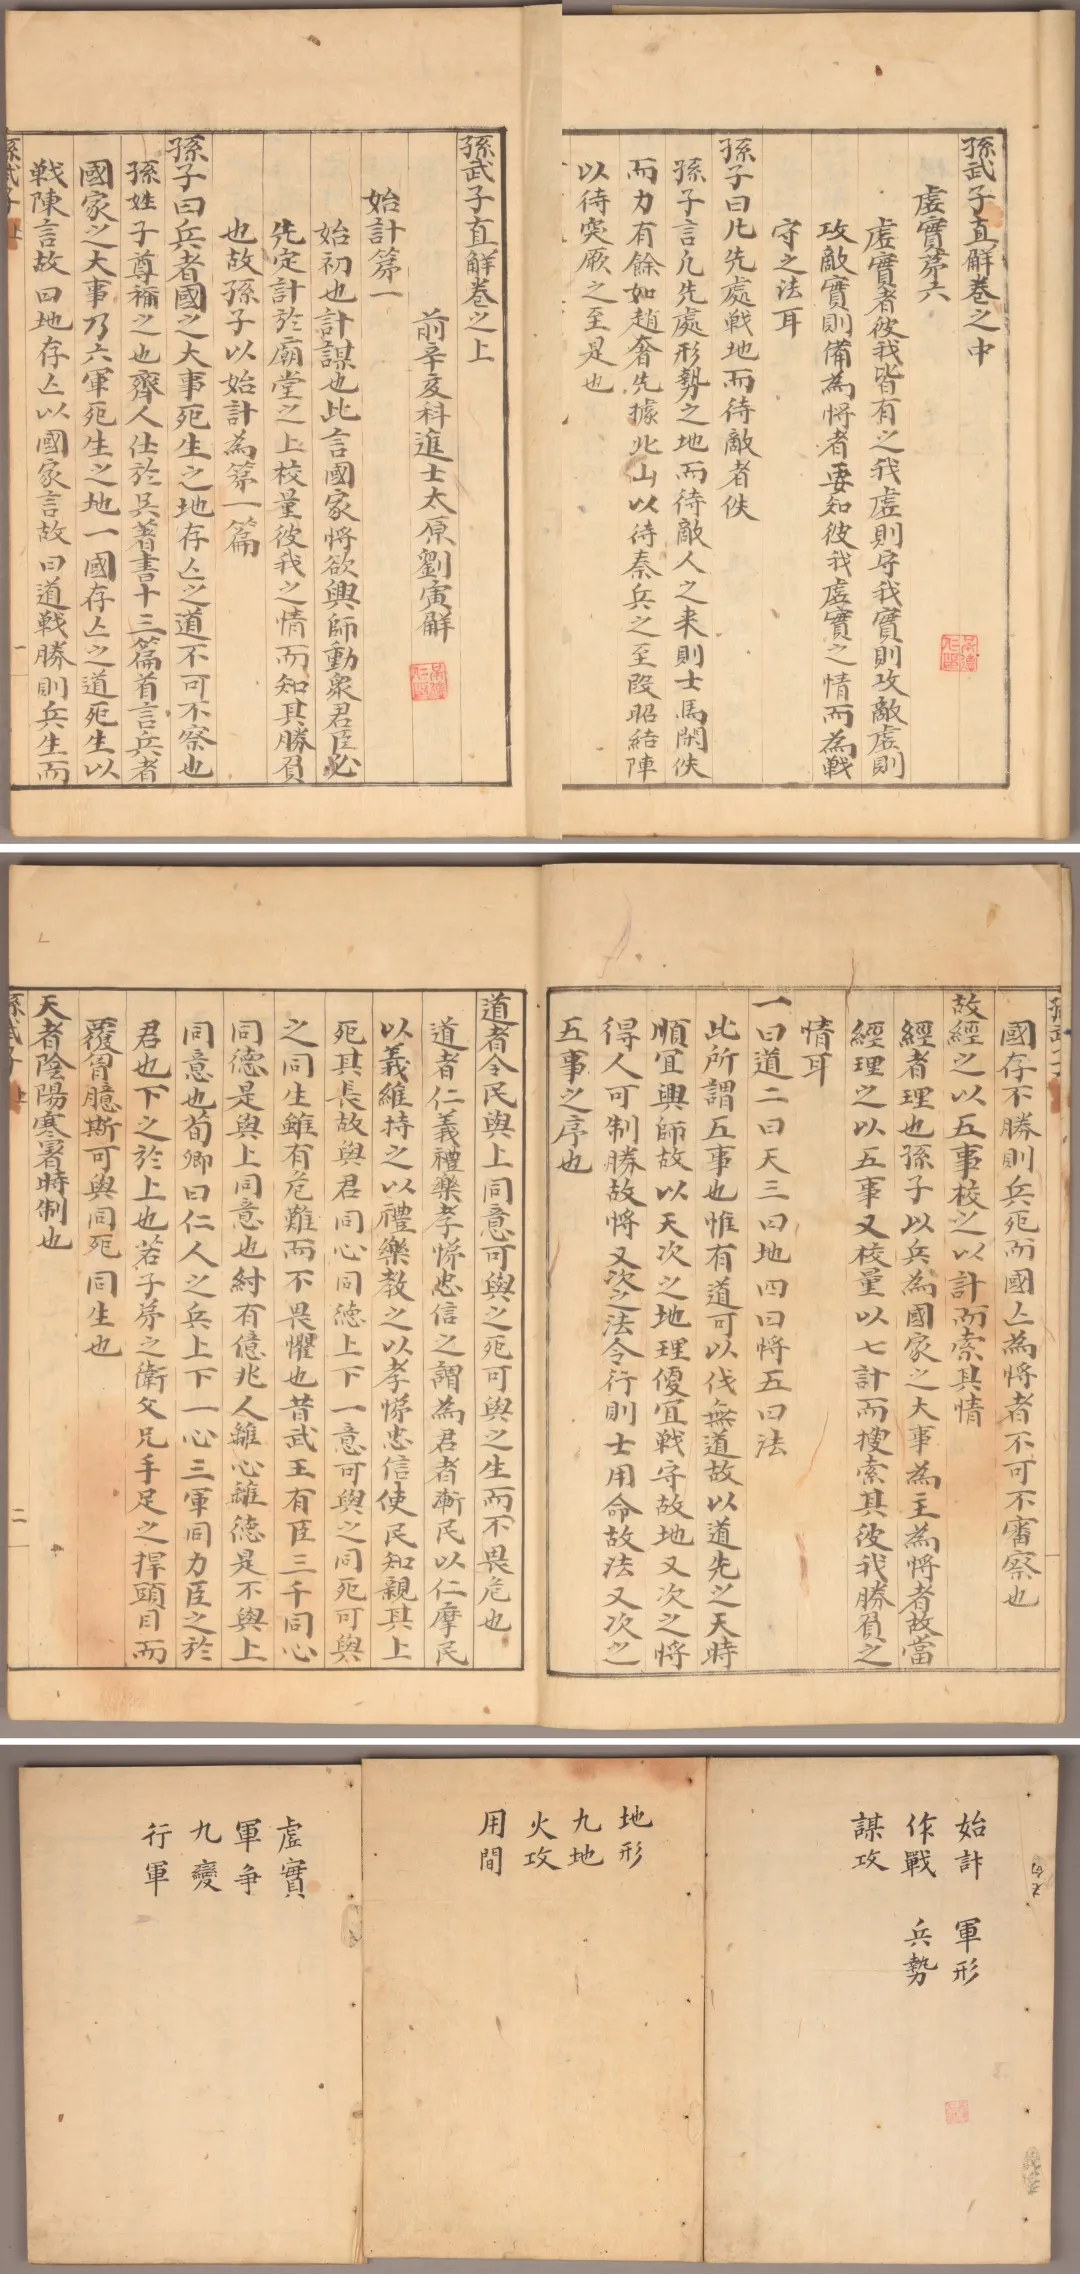 孫武子直解卷之中
虛實第六
虛實者彼我皆有之我虛則守我實則攻敵虛則
攻敵實則備為將者要知彼我虛實之情而為戰
守之法耳
孫子曰凡先處戰地而待敵者佚
孫子言凡先處形勢之地而待敵人之来則士馬閑佚
而力有餘如趙奢先據北山以待秦兵之至段昭結陣
以待突厥之至是也
孫武子直解卷之上
前辛亥科進士太原劉寅解
始計第一
始初也計謀也此言國家將欲興師動衆君臣必
先定計於廟堂之上校量彼我之情而知其勝負
也故孫子以始計為第一篇
孫子曰兵者國之大事死生之地存亡之道不可不察也
孫姓子尊稱之也齊人仕於吳著書十三篇首言兵者
國家之大事乃六軍死生之地一國存亡之道死生以
戰陳言故曰地存亡以國家言故曰道戰勝則兵生而
孫武子 上 一
國存不勝則兵死而國亡為將者不可不審察也
故經之以五事校之以計而索其情
經者理也孫子以兵為國家之大事為主為將者故當
經理之以五事又校量以七計而搜索其彼我勝負之
情耳
一曰道二曰天三曰地四曰將五曰法
此所謂五事也惟有道可以伐無道故以道先之天時
順宜興師故以天次之地理優宜戰守故地又次之將
得人可制勝故將又次之法令行則士用命故法又次之
五事之序也
道者令民與上同意可與之死可與之生而不畏危也
道者仁義禮樂孝悌忠信之謂為君者漸民以仁摩民
以義維持之以禮樂教之以孝悌忠信使民知親其上
死其長故與君同心同德上下一意可與之同死可與
之同生雖有危難而不畏懼也昔武王有臣三千同心
同德是與上同意也紂有億兆人離心離德是不與上
同意也荀卿曰仁人之兵上下一心三軍同力臣之於
君也下之於上也若子弟之衛父兄手足之捍頭目而
覆胷臆斯可與同死同生也
天者陰陽寒暑時制也
孫武子 上 二
始計 軍形
作戰 兵勢
謀攻
地形
九地
火攻
用間
虛實
軍爭
九變
行軍